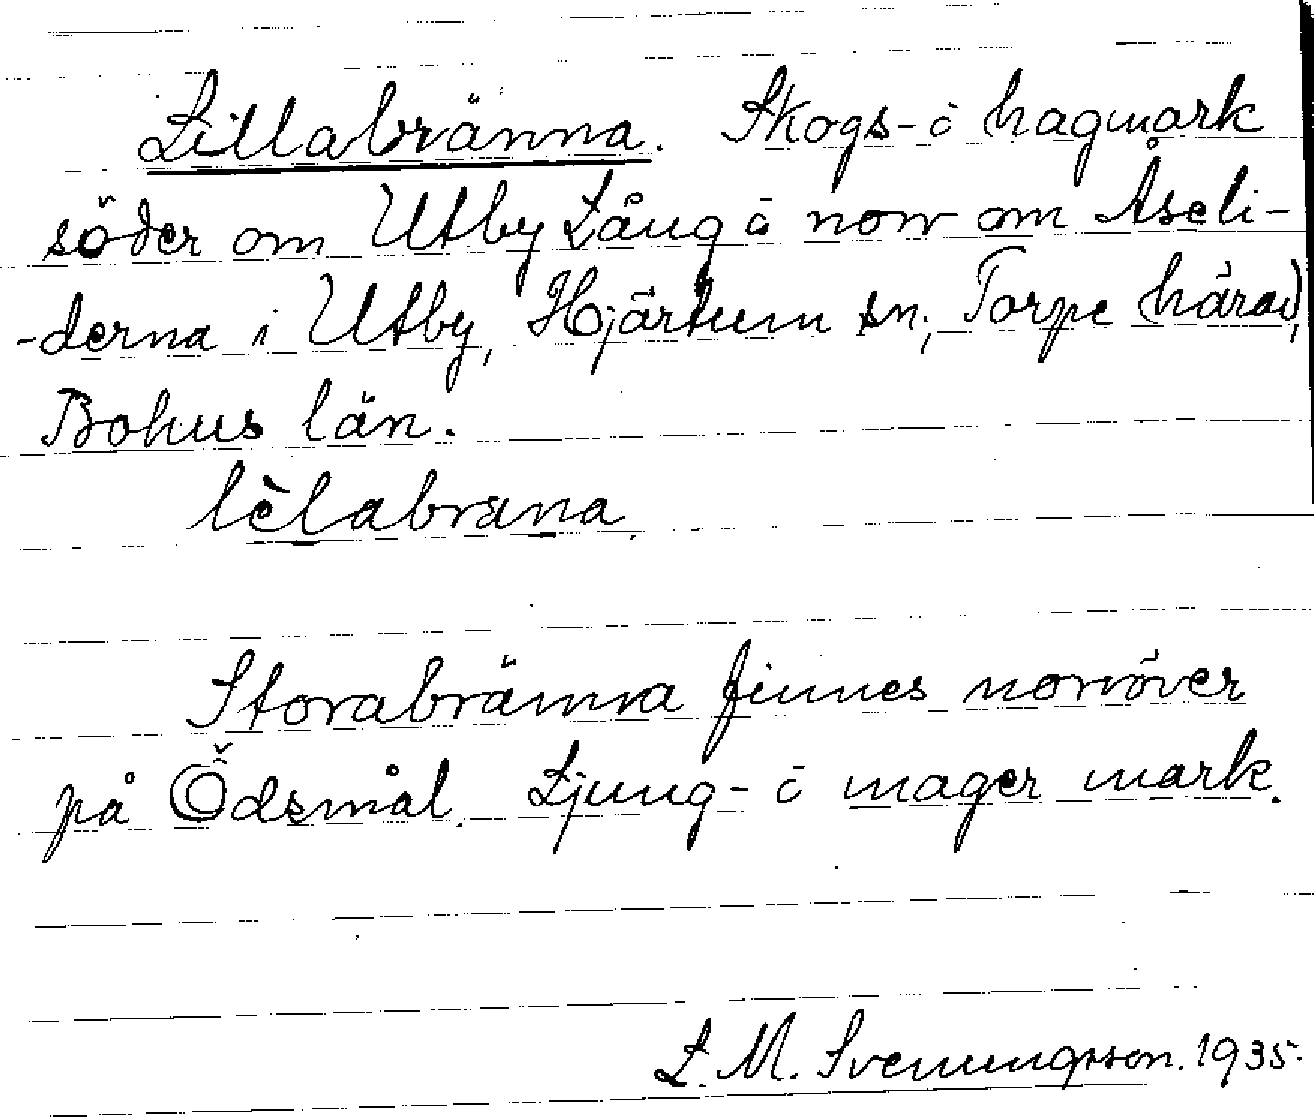 Lillabränna. Skogs- o hagmark
söder om Utby Lång o norr om Åseli-
-derna i Utby, Hjärtum sn; Torpe härad,
Bohus län.
lèlabrana
Storabränna finnes norröver
på Ödsmål. Ljung- o mager mark.
L. M. Svenungsson. 1935.